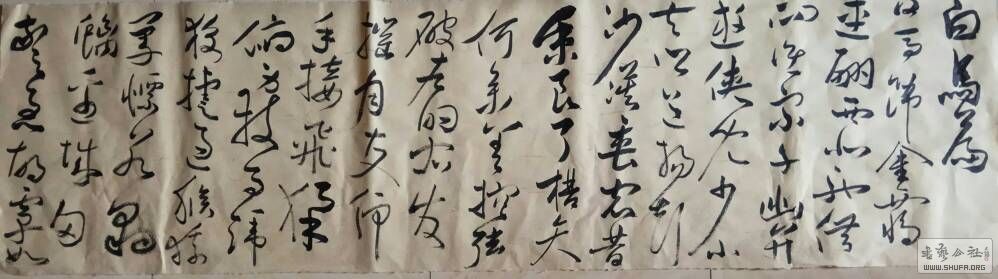 白馬篇
白馬饰金羈
連翩西北馳借
问誰家子幽并
遊俠兒少小
去鄉邑揚声
沙漠垂宿昔
秉良弓楛矢
何参差控弦
破左的右发
摧月支仰
手接飛猱
俯身散馬蹄
狡捷過猴猿
勇慓若豹
螭边城多
警急胡虜数
书艺公社
WWW.SHUFA.ORG